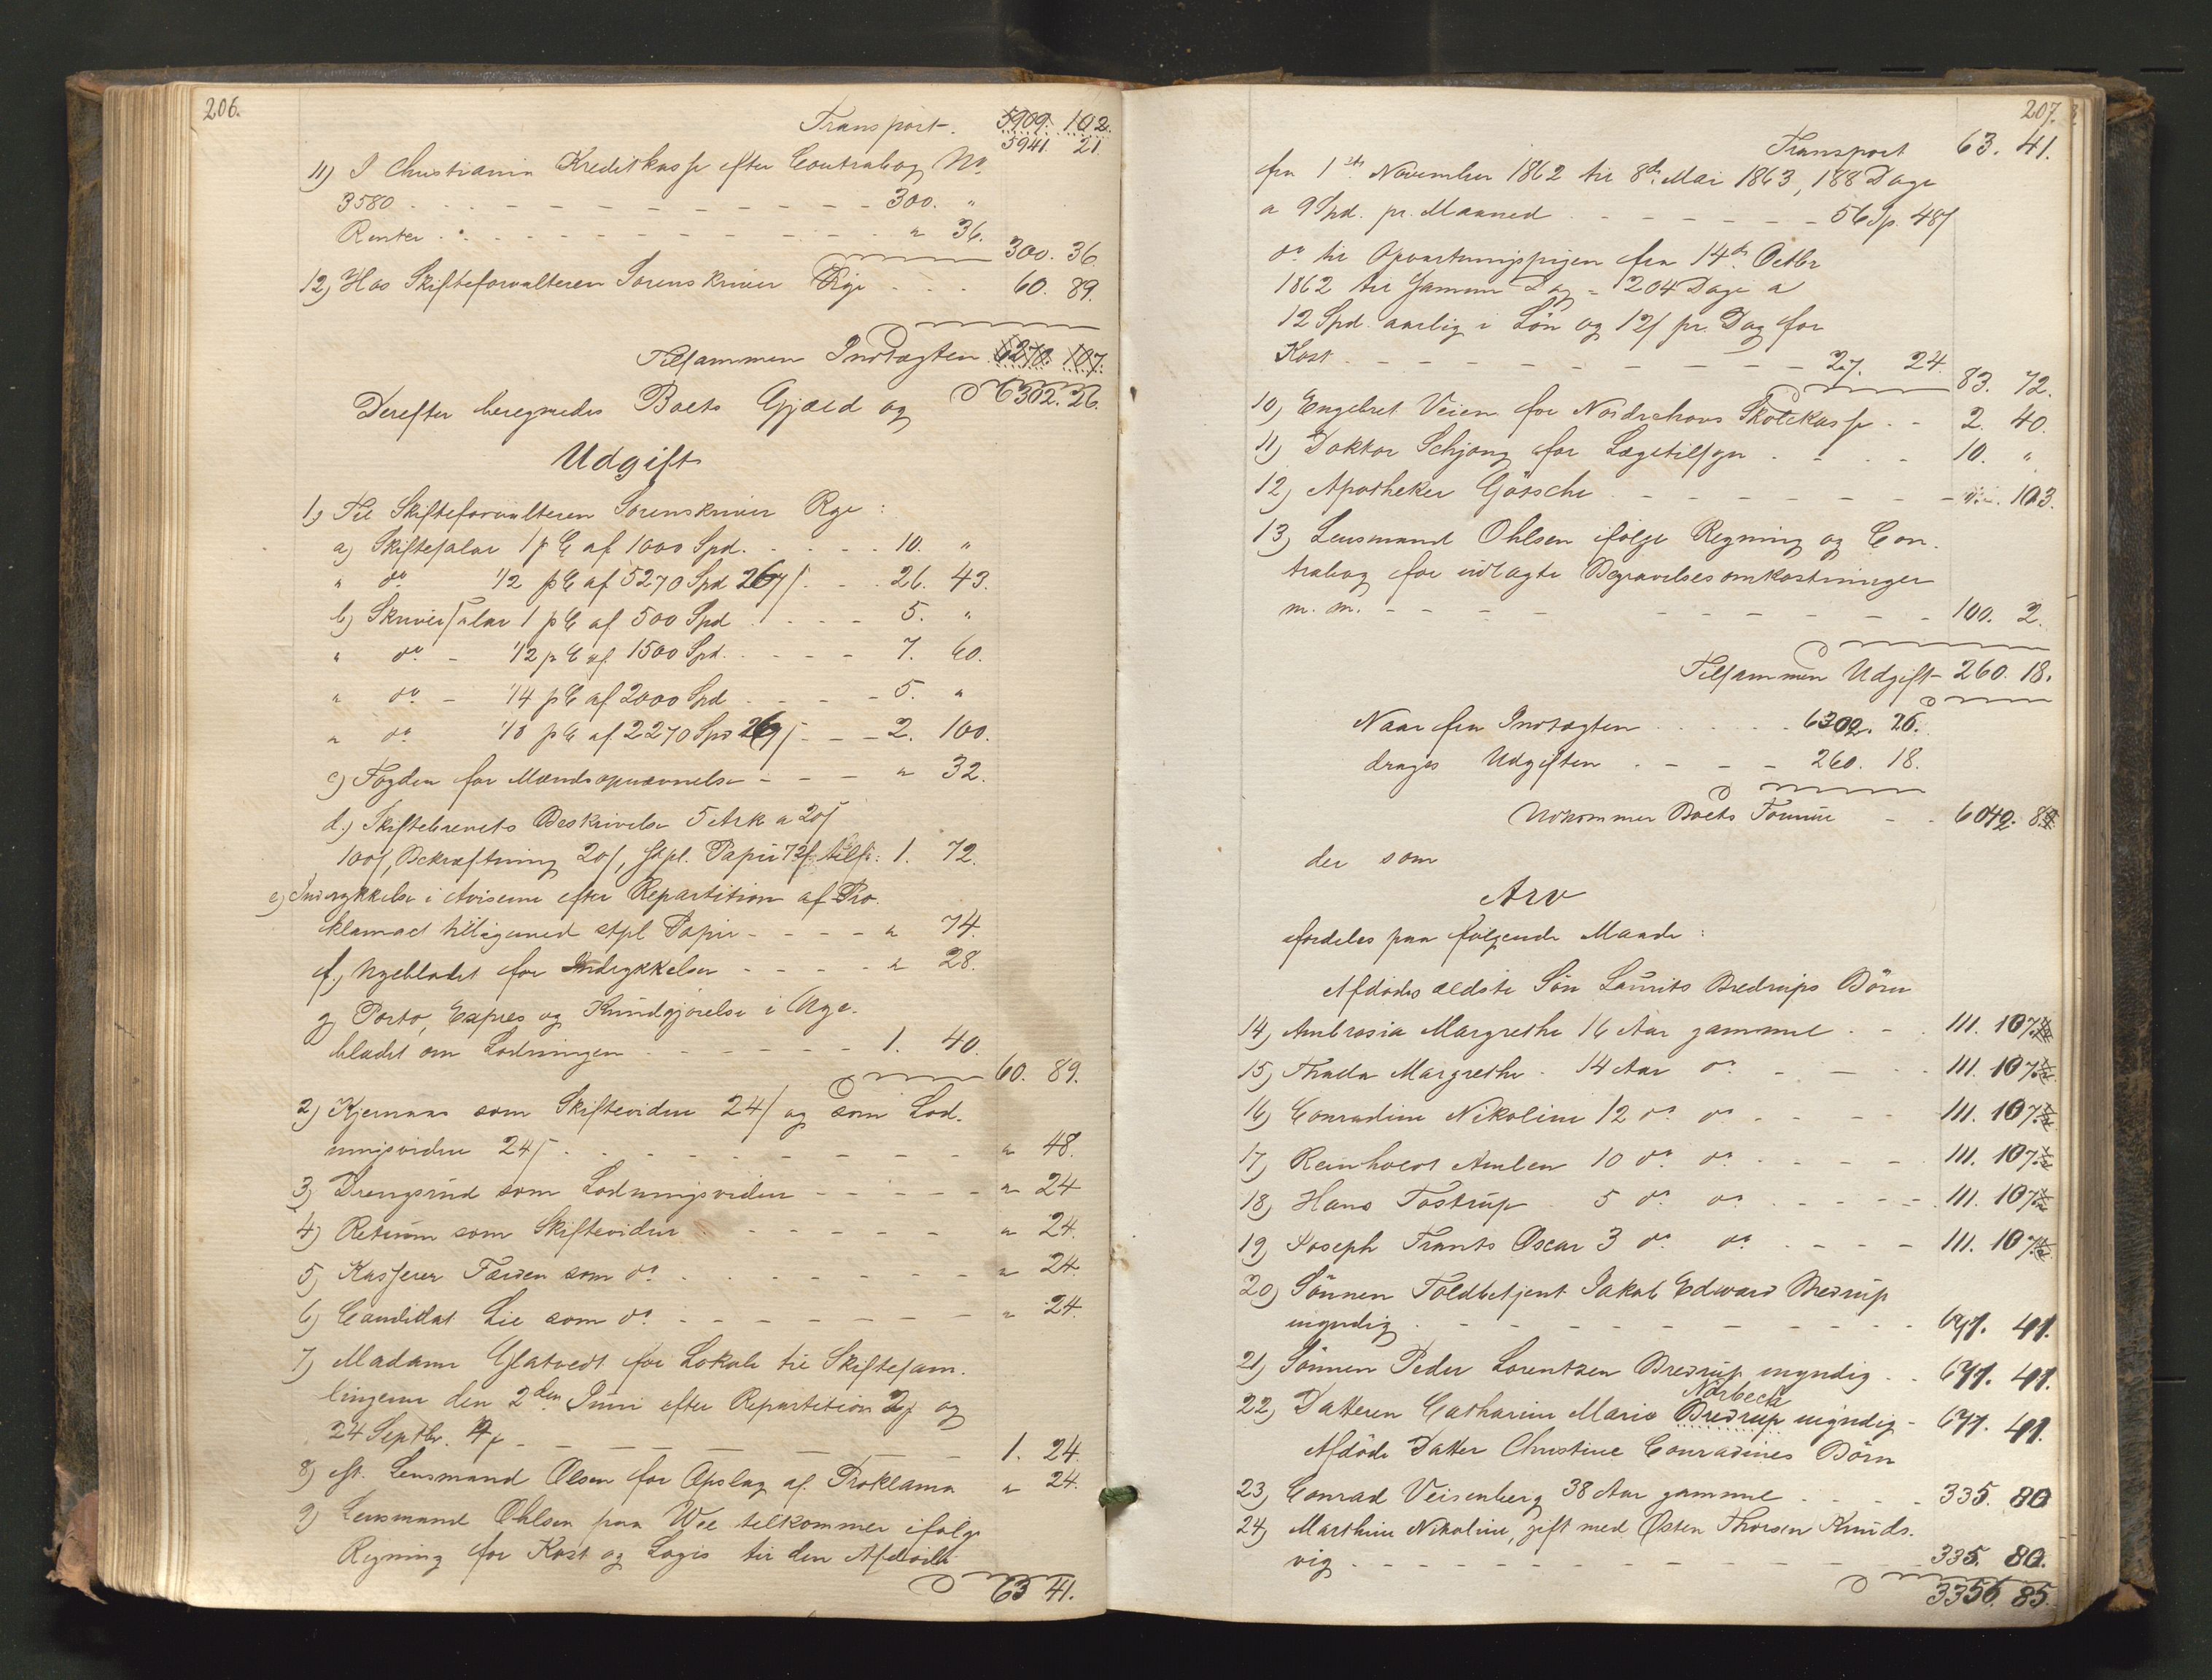 206.
Transport. 5909. 102.
5941. 21.
11) I Christiania Kreditkasse efter Contrabog No
3580 - - - 300. "
Renter - - - " 36.
300. 36.
12) Hos Skifteforvalteren Sorenskriver Rye - - - 60. 89.
Tilsammen Indtægten 6270. 107.
6302. 26.
Derefter beregnedes Boets Gjæld og
Udgift
1) Til Skifteforvalteren Sorenskriver Rye :
a) Skiftesalær 1 p C af 1000 Spd. - - - 10. "
" do 1/2 p C af 5270 Spd - - - 26. 43.
b) Skriversalær 1 p C af 500 Spd - - - 5. "
" do - 1/2 p C af 1500 Spd. - - - 7. 60.
" do - 1/4 p C af 2000 Spd - - - 5. "
" do 1/8 p C af 2270 Spd - - - 2. 100.
c) Fogden for Mændsopnævnelse - - - " 32.
d.) Skiftebrevets Beskrivelse 5 Ark a 20 s
100 s, Bekræftning 20 s, stpl. Papir 72 s. tils: 1. 72.
e) Indrykkelse i Aviserne efter Repartition af Pro-
klamaet tilligemed stpl Papir - - - - " 74.
f.) Ugebladet for Indrykkelser - - - - " 28.
g) Porto, Expres og Kundgjørelse i Uge-
bladet om Lodningen - - - 1. 40.
60. 89.
2) Kjernaas som Skiftevidne 24 s og som Lod-
ningsvidne 24 s - - - " 48.
3) Drengsrud som Lodningsvidne - - - " 24
4) Retrum som Skiftevidne - - - " 24.
5) Kasserer Færden som do - - - " 24.
6) Candidat Lie som do - - - " 24.
7) Madame Glatvedt for Lokale til Skiftesam-
lingerne den 2den Juni efter Repartition og
24 Septbr. - - - 1. 24.
8) fh. Lensmand Olsen for Opslag af Proklama " 24.
9) Lensmand Ohlsen paa Wee tilkommer ifølge
Regning for Kost og Logis til den Afdøde
63 41.
207.
Transport 63. 41.
fra 1ste November 1862 til 8de Mai 1863, 188 Dage
a 9 Spd. pr. Maaned - - - 56 Sp. 48 s
do til Opvartningspigen fra 14de Octbr
1862 til samme Dag = 204 Dage a
12 Spd. aarlig i Løn og 12 s pr. Dag for
Kost - - - 27. 24.
83. 72.
10) Engebret Veien for Norderhovs Skolekasse - - 2. 40.
11) Doktor Schjøng for Lægetilsyn - - - 10. "
12) Apotheker Götsche - - - 103.
13) Lensmand Ohlsen ifølge Regning og Con-
trabog for udlagte Begravelsesomkostninger
m. m. - - - 100. 2.
Tilsammen Udgift 260. 18.
Naar fra Indtægten - - - 6302. 26.
drages Udgiften - - - 260. 18.
Udkommer Boets Formue - - 6042. 8
der som
Arv
fordeles paa følgende Maade :
Afdødes ældste Søn Laurits Bredrups Børn
14) Ambrosia Margrethe 16 Aar gammel - - 111. 107.
15) Thada Margrethe - 14 Aar do - - - 111. 107.
16) Conradine Nikoline 12 do do - - - 111. 107.
17) Reinholdt Amben 10 do do - - - 111. 107.
18) Hans Tostrup 5 do do - - - 111. 107.
19) Joseph Frants Oscar 3 do do - - - 111. 107.
20) Sønnen Toldbetjent Jakob Edward Bredrup
myndig - - - 671. 41.
21) Sønnen Peder Lorentzen Bredrup myndig - - 671. 41.
Norbeck
22) Datteren Catharine Marie Bredrup myndig - 671. 41.
Afdøde Datter Christine Conradines Børn
23) Conrad Veisenberg 38 Aar gammel - - - 335. 80
24) Marthine Nikoline, gift med Østen Thorsen Knuds-
vig - - - 335. 80.
3356. 85.